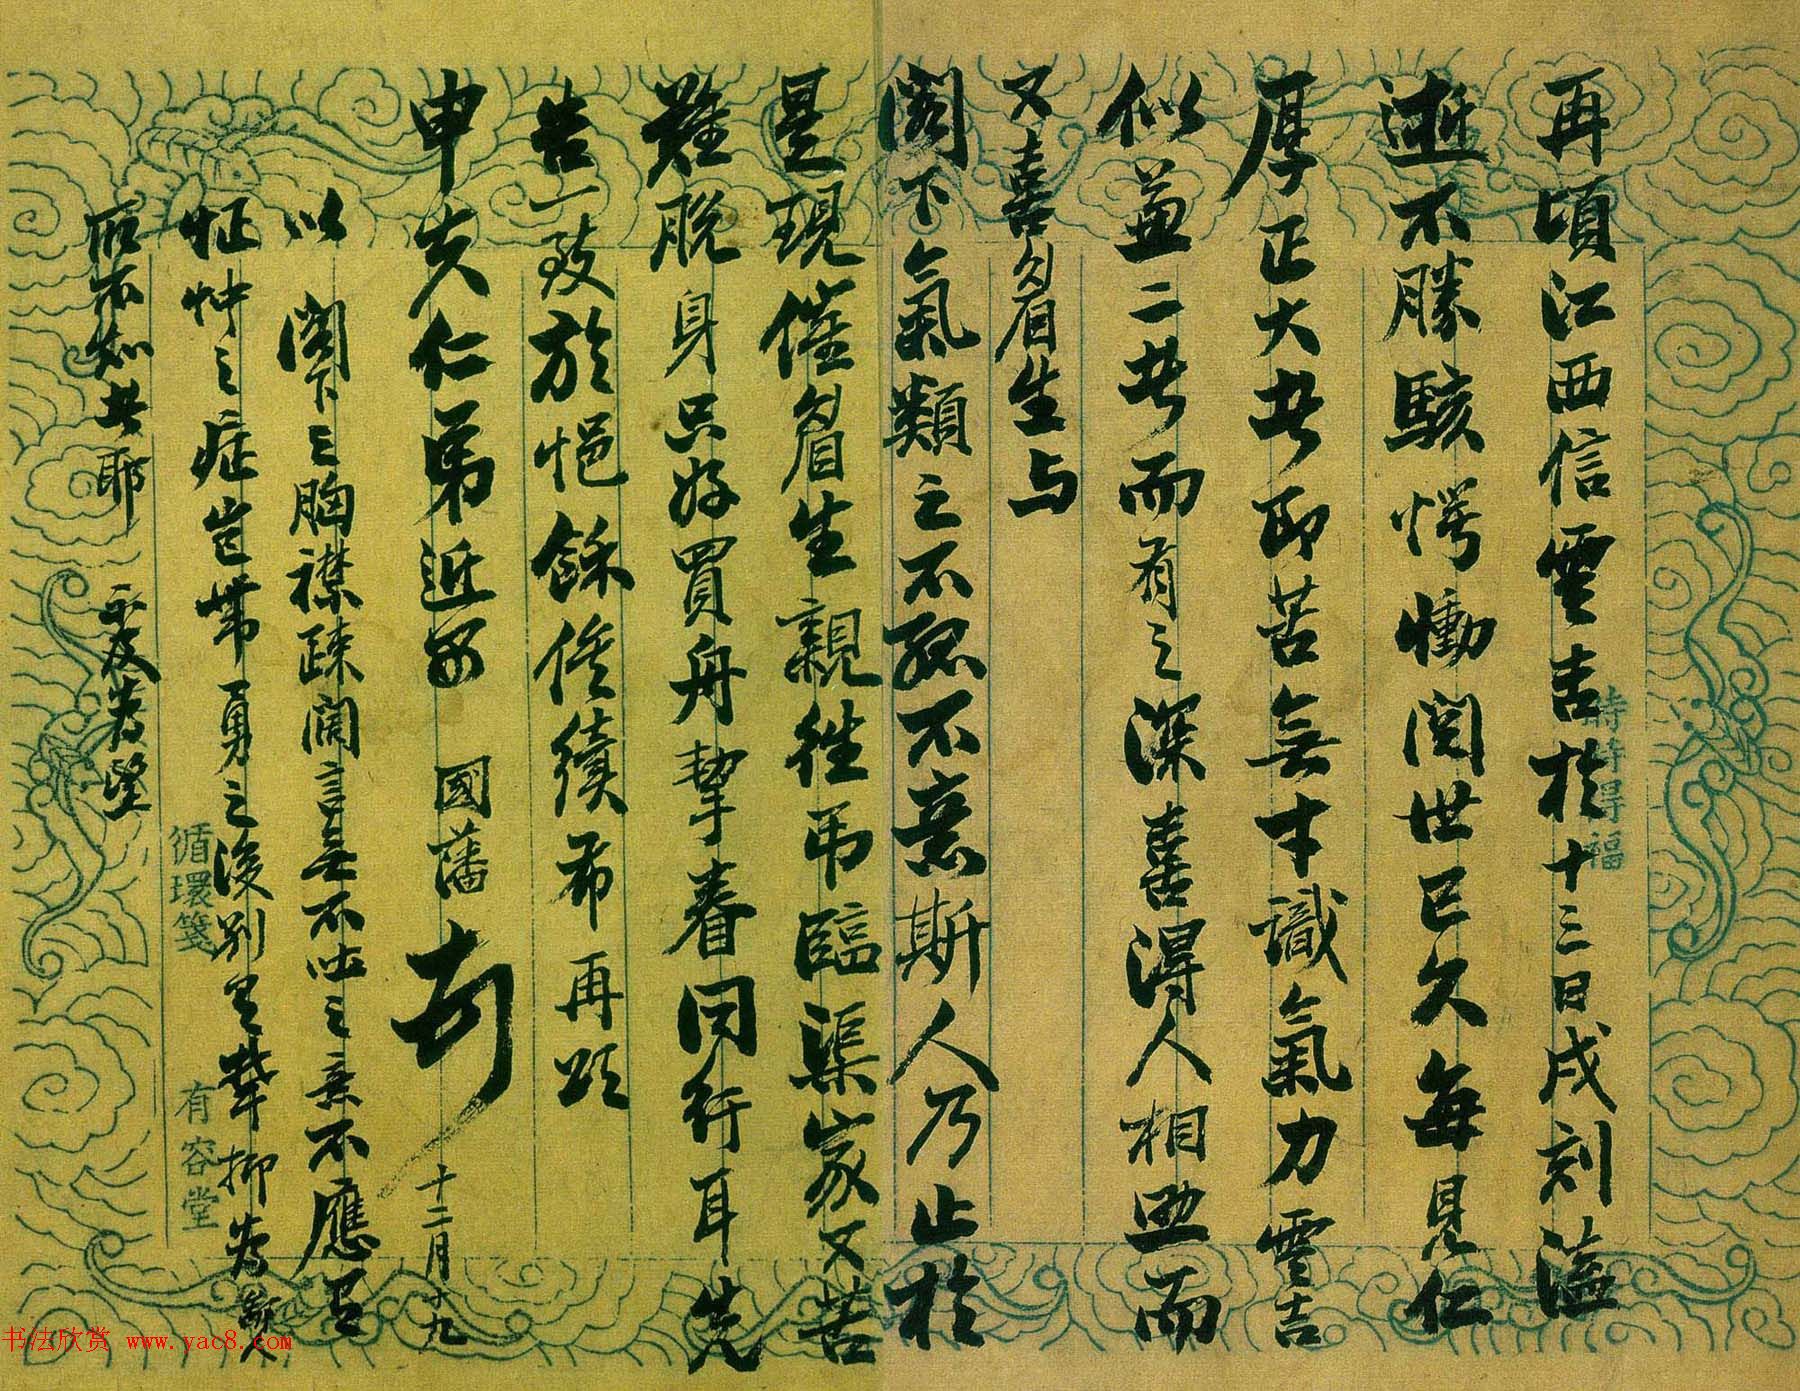 再頃江西信雲吉於十三日戌刻溘
逝不勝駭愕慟閱世已久每見仁
厚正大者即苦無才識氣力雲吉
似兼二者而有之深喜得人相助而
又喜眉生与
閣下氣類之不孤不意斯人乃止於
是現催眉生親往弔臨渠家又苦
難脫身只好買舟挈眷同行耳先
告一致於悒餘俟續布再頌
申夫仁弟近安 國藩 十二月十九
以閣下之胸襟疎闊言無不吐之意不應有
怔忡之症豈帶勇之後別有鬱抑為斯人
所不知者耶 示及為望
循環箋
有容堂
书法欣赏 www.yac8.com